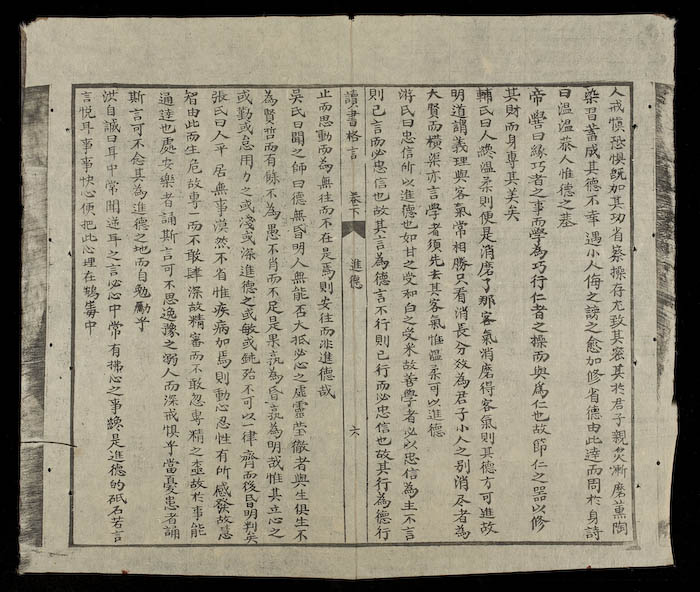 人戒慎恐懼既加其功省察操存尤致其密其於君子親炙漸磨薫陶
染習蓄成其德不幸遇小人侮之謗之愈加修省德由此達而問於身詩
曰温温恭人惟德之基
帝學曰緣巧者之事而學為巧行仁者之操而與為仁也故節仁之器以修
其財而身專其美矣
輔氏曰人纔温柔則便是消磨了那客氣消磨得客氣則其德方可進故
明道謂義理與客氣常相勝只看消長分数為君子小人之别消尽者為
大賢而横渠亦言學者須先去其客氣惟温柔可以進德
游氏曰忠信所以進德也如甘之受和白之受采故善學者必以忠信為主不言
則已言而必忠信也故其言為德言不行則已行而必忠信也故其行為德行
讀書格言 卷下 進德 六
止而思動而為無往而不在是焉則安往而非進德哉
吴氏曰聞之師曰德無昏明人無能否大抵必心之虚靈莹徹者與生俱生不
為賢哲而有賖不為愚不肖而不足是果孰為昏孰為明哉惟其立心之
或勤或怠用力之或淺或深進德之或敏或鈍殆不可以一律齊而後昏明判矣
張氏曰人平居無事漠然不省惟疾病加焉則動心忍性有所感發故慧
智由此而生危故専一而不敢肆深故精審而不敢忽専精之至故於事能
通達也處安樂者誦斯言可不思逸豫之溺人而深戒惧乎當憂患者誦
斯言可不念其為進德之地而自勉勵乎
洪自誠曰耳中常聞逆耳之言必心中常有拂心之事纔是進德的砥石若言
言悦耳事事快心便把此心埋在鴆毒中